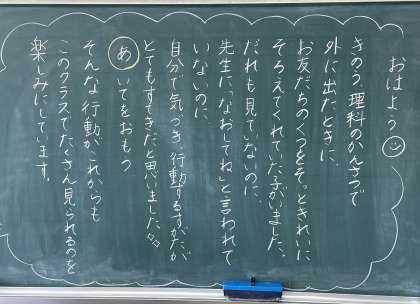 おはよう
きのう 理科のかんさつで
外に出たときに、
お友だちのくつをそっときれいに
そろえてくれていた子がいました。
だれも見ていないのに、
先生に、「なおしてね」と言われて
いないのに、
自分で気づき、行動するすがたが
とてもすてきだと思いました。
あいてをおもう
そんな行動が、これからも
このクラスでたくさん見られるのを
楽しみにしています。